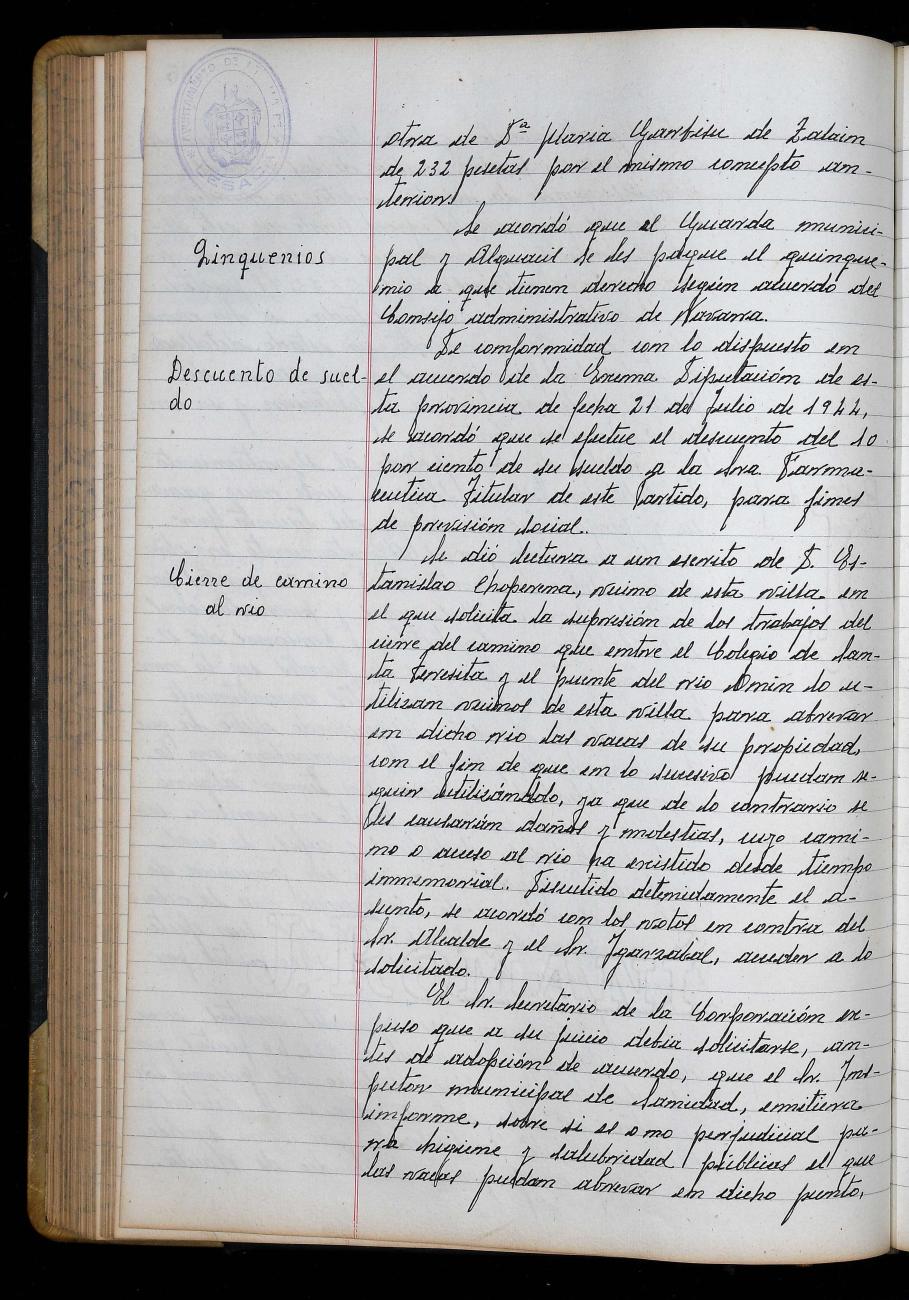 AYUNTAMIENTO DE
LESACA
otra de Dª Maria Garbisu de Zalain
de 232 pesetas por el mismo concepto an-
terior.
Se acordó que el Guarda munici-
Qinquenios
pal y Alguacil se les pague el quinque-
nio a que tienen derecho según acuerdo del
Consejo administrativo de Navarra.
De conformidad con lo dispuesto en
Descuento de suel-
do
el acuerdo de la Excma Diputación de es-
ta provincia de fecha 21 de Julio de 1944,
se acordó que se efectue el descuento del 10
por ciento de su sueldo a la Sra. Farma-
ceutica Titular de este Partido, para fines
de previsión social.
Se dió lectura a un escrito de D. Es-
Cierre de camino
al rio
tanislao Choperena, vecino de esta villa en
el que solicita la supresión de los trabajos del
cierre del camino que entre el Colegio de San-
ta Teresita y el puente del rio Onin lo u-
tilizan vecinos de esta villa para abrevar
en dicho rio las vacas de su propiedad,
con el fin de que en lo sucesivo puedan se-
guir utilizándolo, ya que de lo contrario se
les causarán daños y molestias, cuyo cami-
no o acceso al rio ha existido desde tiempo
inmemorial. Discutido detenidamente el a-
sunto, se acordó con los votos en contra del
Sr. Alcalde y el Sr. Ygarzabal, acceder a lo
solicitado.
El Sr. Secretario de la Corporación ex-
puso que a su juicio debia solicitarse, an-
tes de adopción de acuerdo, que el Sr. Ins-
pector municipal de Sanidad, emitiera
informe, sobre si es o no perjudicial pa-
ra higiene y salubridad públicas el que
las vacas puedan abrevar en dicho punto,